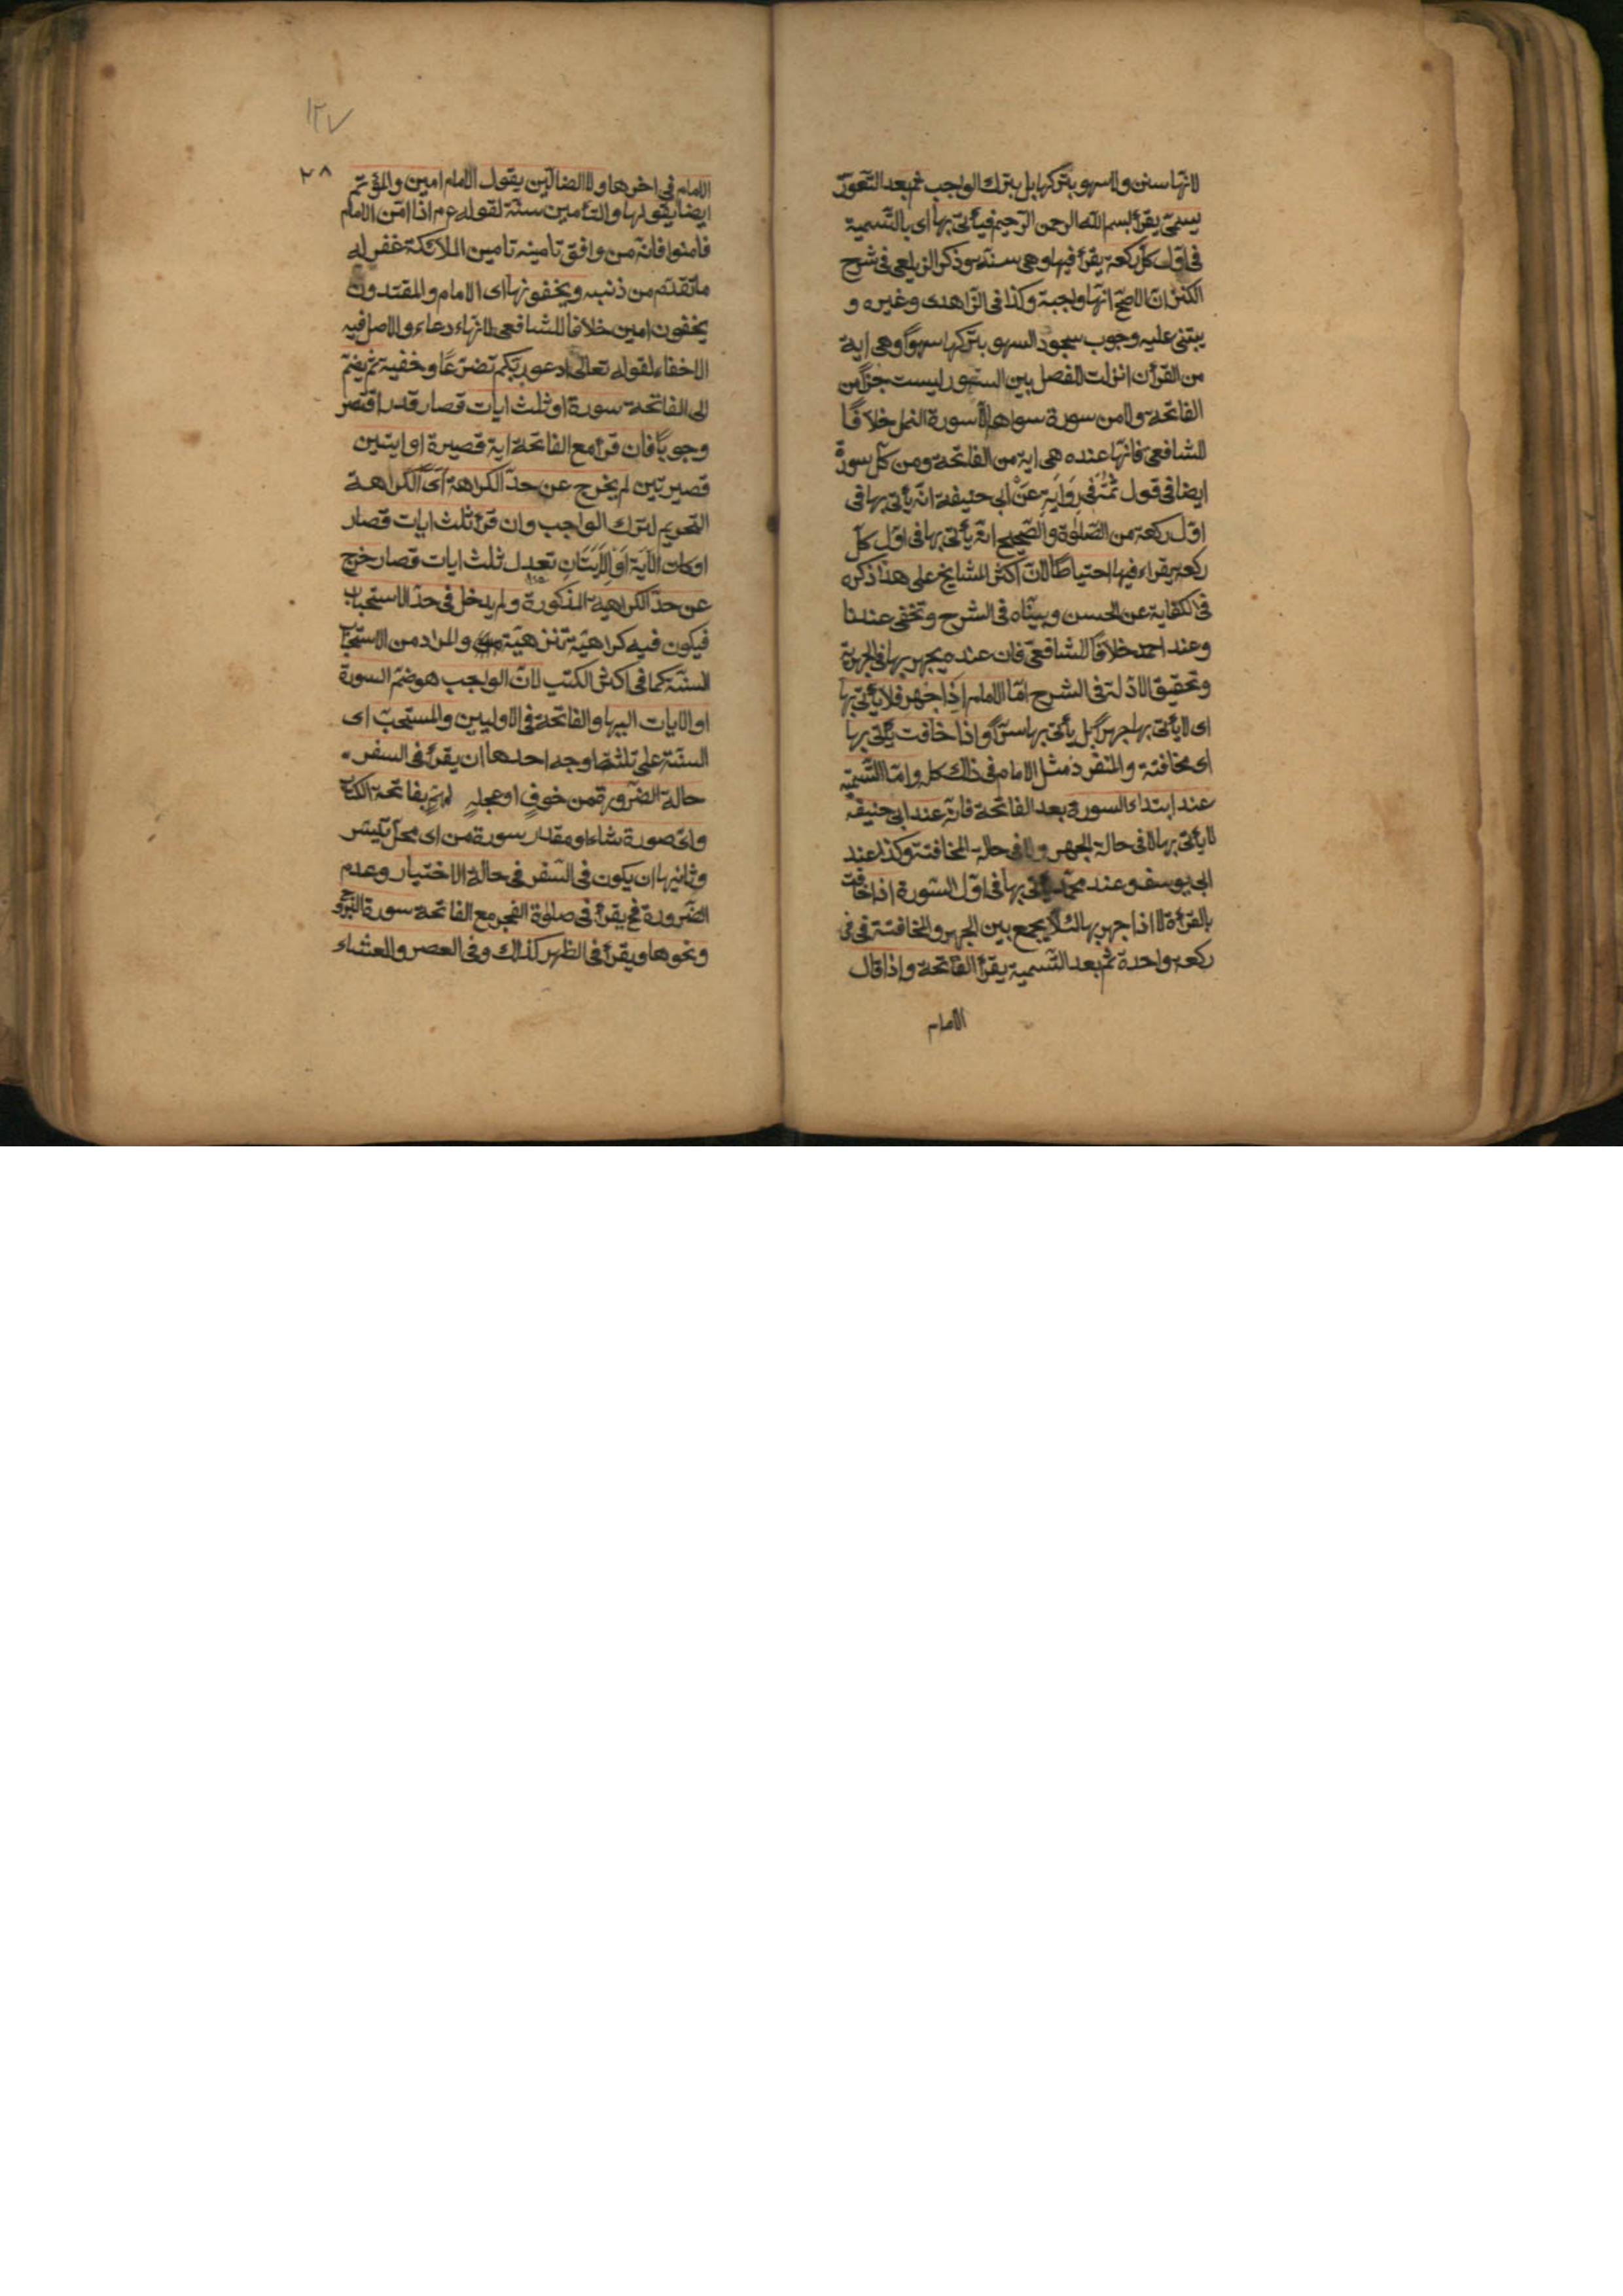 لانها سنن ولا سهو بتركها بل بترك الواجب ثم بعد التعوذ
يسمى يقرأ بسم الله الرحمن الرحيم فيأتى بها اى بالتسمية
فى اول كل ركعة يقرأ فيها وهى سنة وذكر الزيلعى فى شرح
الكنز ان الاصح انها واجبة وكذا فى الزاهدى وغيره و
يبتنى عليه وجوب سجود السهو بتركها سهوا وهى اية
من القرآن انزلت للفصل بين السور ليست جزأ من
الفاتحة ولا من سورة سواها الا سورة النمل خلافا
للشافعى فانها عنده هى اية من الفاتحة ومن كل سورة
ايضا فى قول ثم فى رواية عن ابى حنيفة انه يأتى بها فى
اول ركعة من الصلوة والصحيح انه يأتى بها فى اول كل
ركعة يقراء فيها احتياطا لان اكثر المشايخ على هذا ذكره
فى الكفاية عن الحسن وبيناه فى الشرح وتخفى عندنا
وعند احمد خلافا للشافعى فان عنده يجهر بها فى الجهرية
وتحقيق الادلة فى الشرح اما الامام اذا جهر فلا يأتى بها
اى لا يأتى بها جهرا بل يأتى بها سرا واذا خافت يأتى بها
اى مخافتة والمنفرد مثل الامام فى ذلك كله واما التسمية
عند ابتداء السورة بعد الفاتحة فانه عند ابى حنيفة
لا يأتى بها لا فى حالة الجهر ولا فى حالة المخافتة وكذا عند
ابى يوسف وعند محمد يأتى بها فى اول السورة اذا خافت
بالقرأة لا اذا جهر بها لئلا يجمع بين الجهر والمخافتة فى فى
ركعة واحدة ثم بعد التسمية يقرأ الفاتحة واذا قال
الامام
١٢٧
٢٨
الامام فى اخرها ولا الضالين يقول الامام امين والمؤتم
ايضا يقولها والتأمين سنة لقوله عم اذا امن الامام
فامنوا فانه من وافق تامينه تامين الملائكة غفر له
ما تقدم من ذنبه ويخفونها اى الامام والمقتدون
يخفون امين خلافا للشافعى لانها دعاء والاصل فيه
الاخفاء لقوله تعالى ادعوا ربكم تضرعا وخفية ثم يضم
الى الفاتحة سورة او ثلث ايات قصار قدر اقصر
وجوبا فان قرأ مع الفاتحة اية قصيرة او ايتين
قصيرتين لم يخرج عن حد الكراهة اى الكراهة
التحريم لترك الواجب وان قرأ ثلث ايات قصار
او كانت الآية او الآيتان تعدل ثلث ايات قصار خرج
عن حد الكراهية المذكورة ولم يدخل فى حد الاستحباب
فيكون فيه كراهية تنزهية والمراد من الاستحباب
السنة كما فى اكثر الكتب لان الواجب هو ضم السورة
او الايات اليها والفاتحة فى الاوليين والمستحب اى
السنة على ثلثة اوجه احدها ان يقرأ فى السفر
حالة الضرورة من خوف او عجلة بفاتحة الكتاب
واى صورة شاء او مقدار سورة من اى محل تيسر
وثانيها ان يكون فى السفر فى حالة الاختيار وعدم
الضرورة فح يقرأ فى صلوة الفجر مع الفاتحة سورة البروج
ونحوها ويقرأ فى الظهر كذلك وفى العصر والعشاء